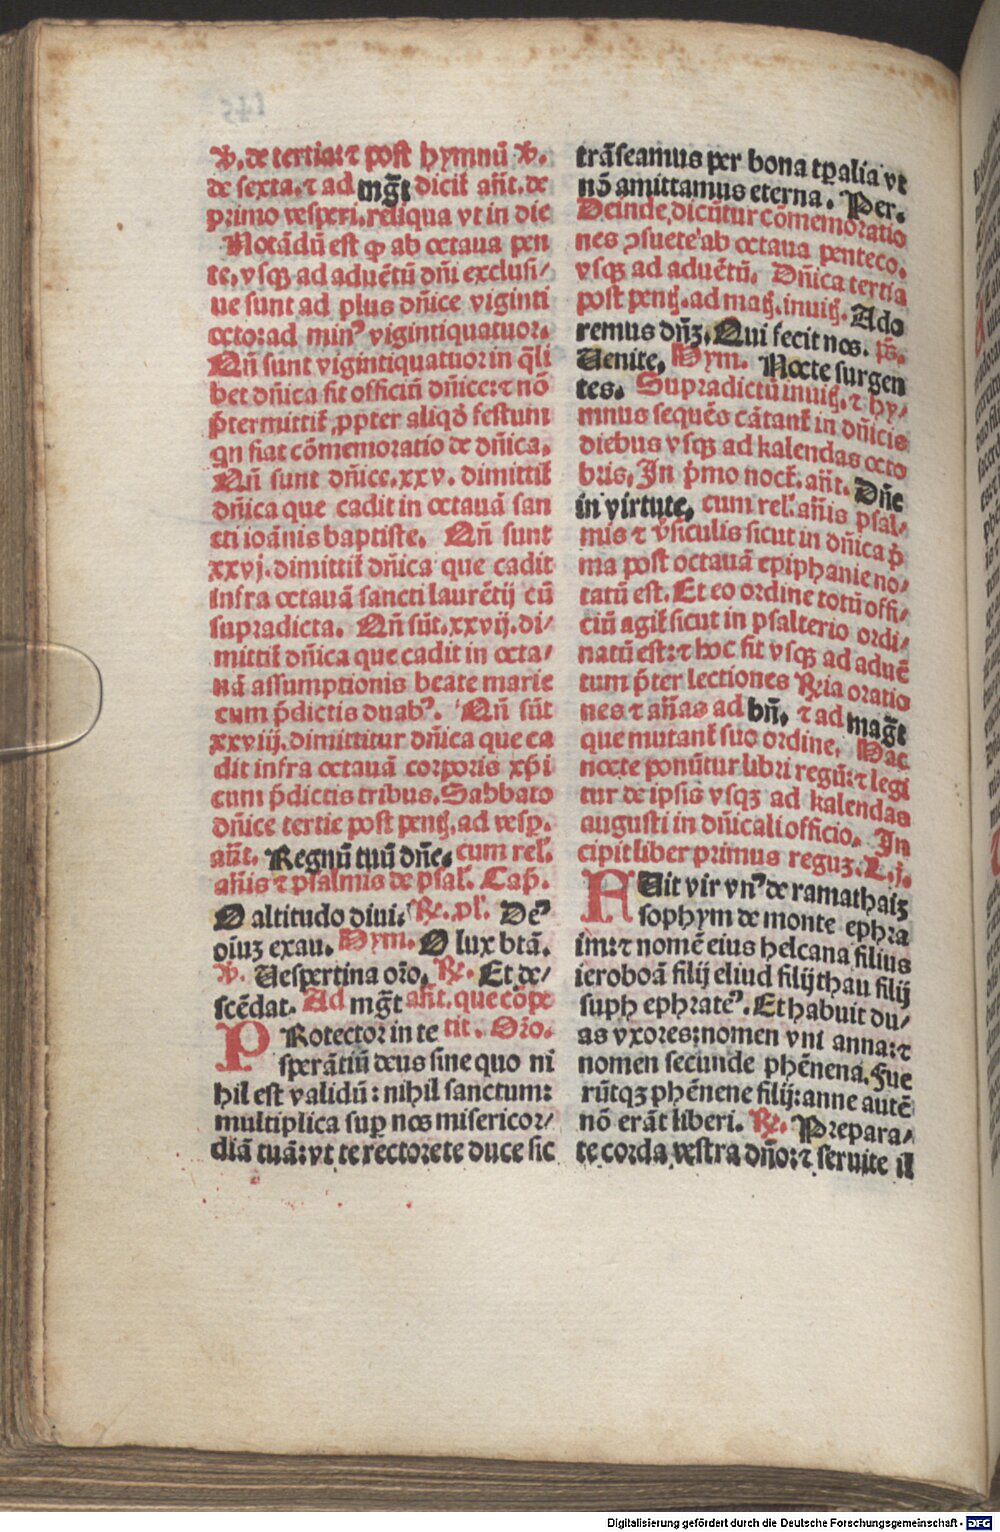 ℣. de tertia: ⁊ post hymnū ℣.
de sexta. ⁊ ad mg̃t dicit᷑ añt. de
primo vesperi. reliqua vt in die
Notādū est ꝙ ab octaua pen
te. vsqꝫ ad aduētū dñi exclusi/
ue sunt ad plus dñice viginti
octo: ad minꝰ vigintiquatuor.
Qñ sunt vigintiquatuor in q̄li
bet dñica fit officiū dñice: ⁊ nō
p̄termittit᷑ ꝓpter aliqđ festum
qn fiat cōmemoratio de dñica.
Qñ sunt dñice. xxv. dimittit᷑
dñica que cadit in octauā san
cti ioānis baptiste. Qñ sunt
xxvj. dimittit᷑ dñica que cadit
infra octauā sancti laurētij cū
supradicta. Qñ sūt. xxvij. di/
mittit᷑ dñica que cadit in octa/
uā assumptionis beate marie
cum p̄dictis duabꝰ. Qñ sūt
xxviij. dimittitur dñica que ca
dit infra octauā corporis xp̄i
cum p̄dictis tribus. Sabbato
dñice tertie post penth̄. ad vesꝑ.
añt. Regnū tuū dñe. cum rel̓.
añis ⁊ psalmis de psal̓. Cap̄.
O altitudo diui. ℟. pl̓. Deꝰ
oīuꝫ exau. Hym. O lux btā.
℣. Uespertina or̄o. ℟. Et de/
scēdat. Ad mg̃t añt. que cōpe
PRotector in te tit. Or̄o.
sperātiū deus sine quo ni
hil est validū: nihil sanctum:
multiplica suꝑ nos misericor/
diā tuā: vt te rectore te duce sic
trāseamus per bona tꝑalia vt
nō amittamus eterna. Per.
Deinde dicūtur cōmemoratio
nes ꝯsuete ab octaua penteco.
vsqꝫ ad aduētū. Dñica tertia
post penth̄. ad math̄. inuith̄. Ado
remus dñꝫ. Qui fecit nos. p̄s.
Uenite. Hym. Nocte surgen
tes. Supradictū inuith̄. ⁊ hy/
mnus sequēs cātant᷑ in dñicis
diebus vsqꝫ ad kalendas octo
bris. In p̄mo noct᷑. añt. Dñe
in virtute. cum rel̓. añis psal/
mis ⁊ v̓siculis sicut in dñica p̄
ma post octauā epiphanie no/
tatū est. Et eo ordine totū offi/
ciū agit᷑ sicut in psalterio ordi/
natū est: ⁊ hoc fit vsqꝫ ad aduē
tum p̄ter lectiones ℟ia oratio
nes ⁊ añas ad bñ. ⁊ ad mag̃t
que mutant᷑ suo ordine. Hac
nocte ponūtur libri regū: ⁊ legi
tur de ipsis vsqꝫ ad kalendas
augusti in dñicali officio. In
cipit liber primus reguꝫ. L. j.
FUit vir vnꝰ de ramathaiꝫ
sophym de monte ephra
im: ⁊ nomē eius helcana filius
ieroboā filij eliud filij thau filij
suph ephrateꝰ. Et habuit du/
as vxores: nomen vni anna: ⁊
nomen secunde phēnena. Fue
rūtqꝫ phēnene filij: anne autē
nō erāt liberi. ℟. Prepara/
te corda vestra dño: ⁊ seruite il
Digitalisierung gefördert durch die Deutsche Forschungsgemeinschaft - DFG